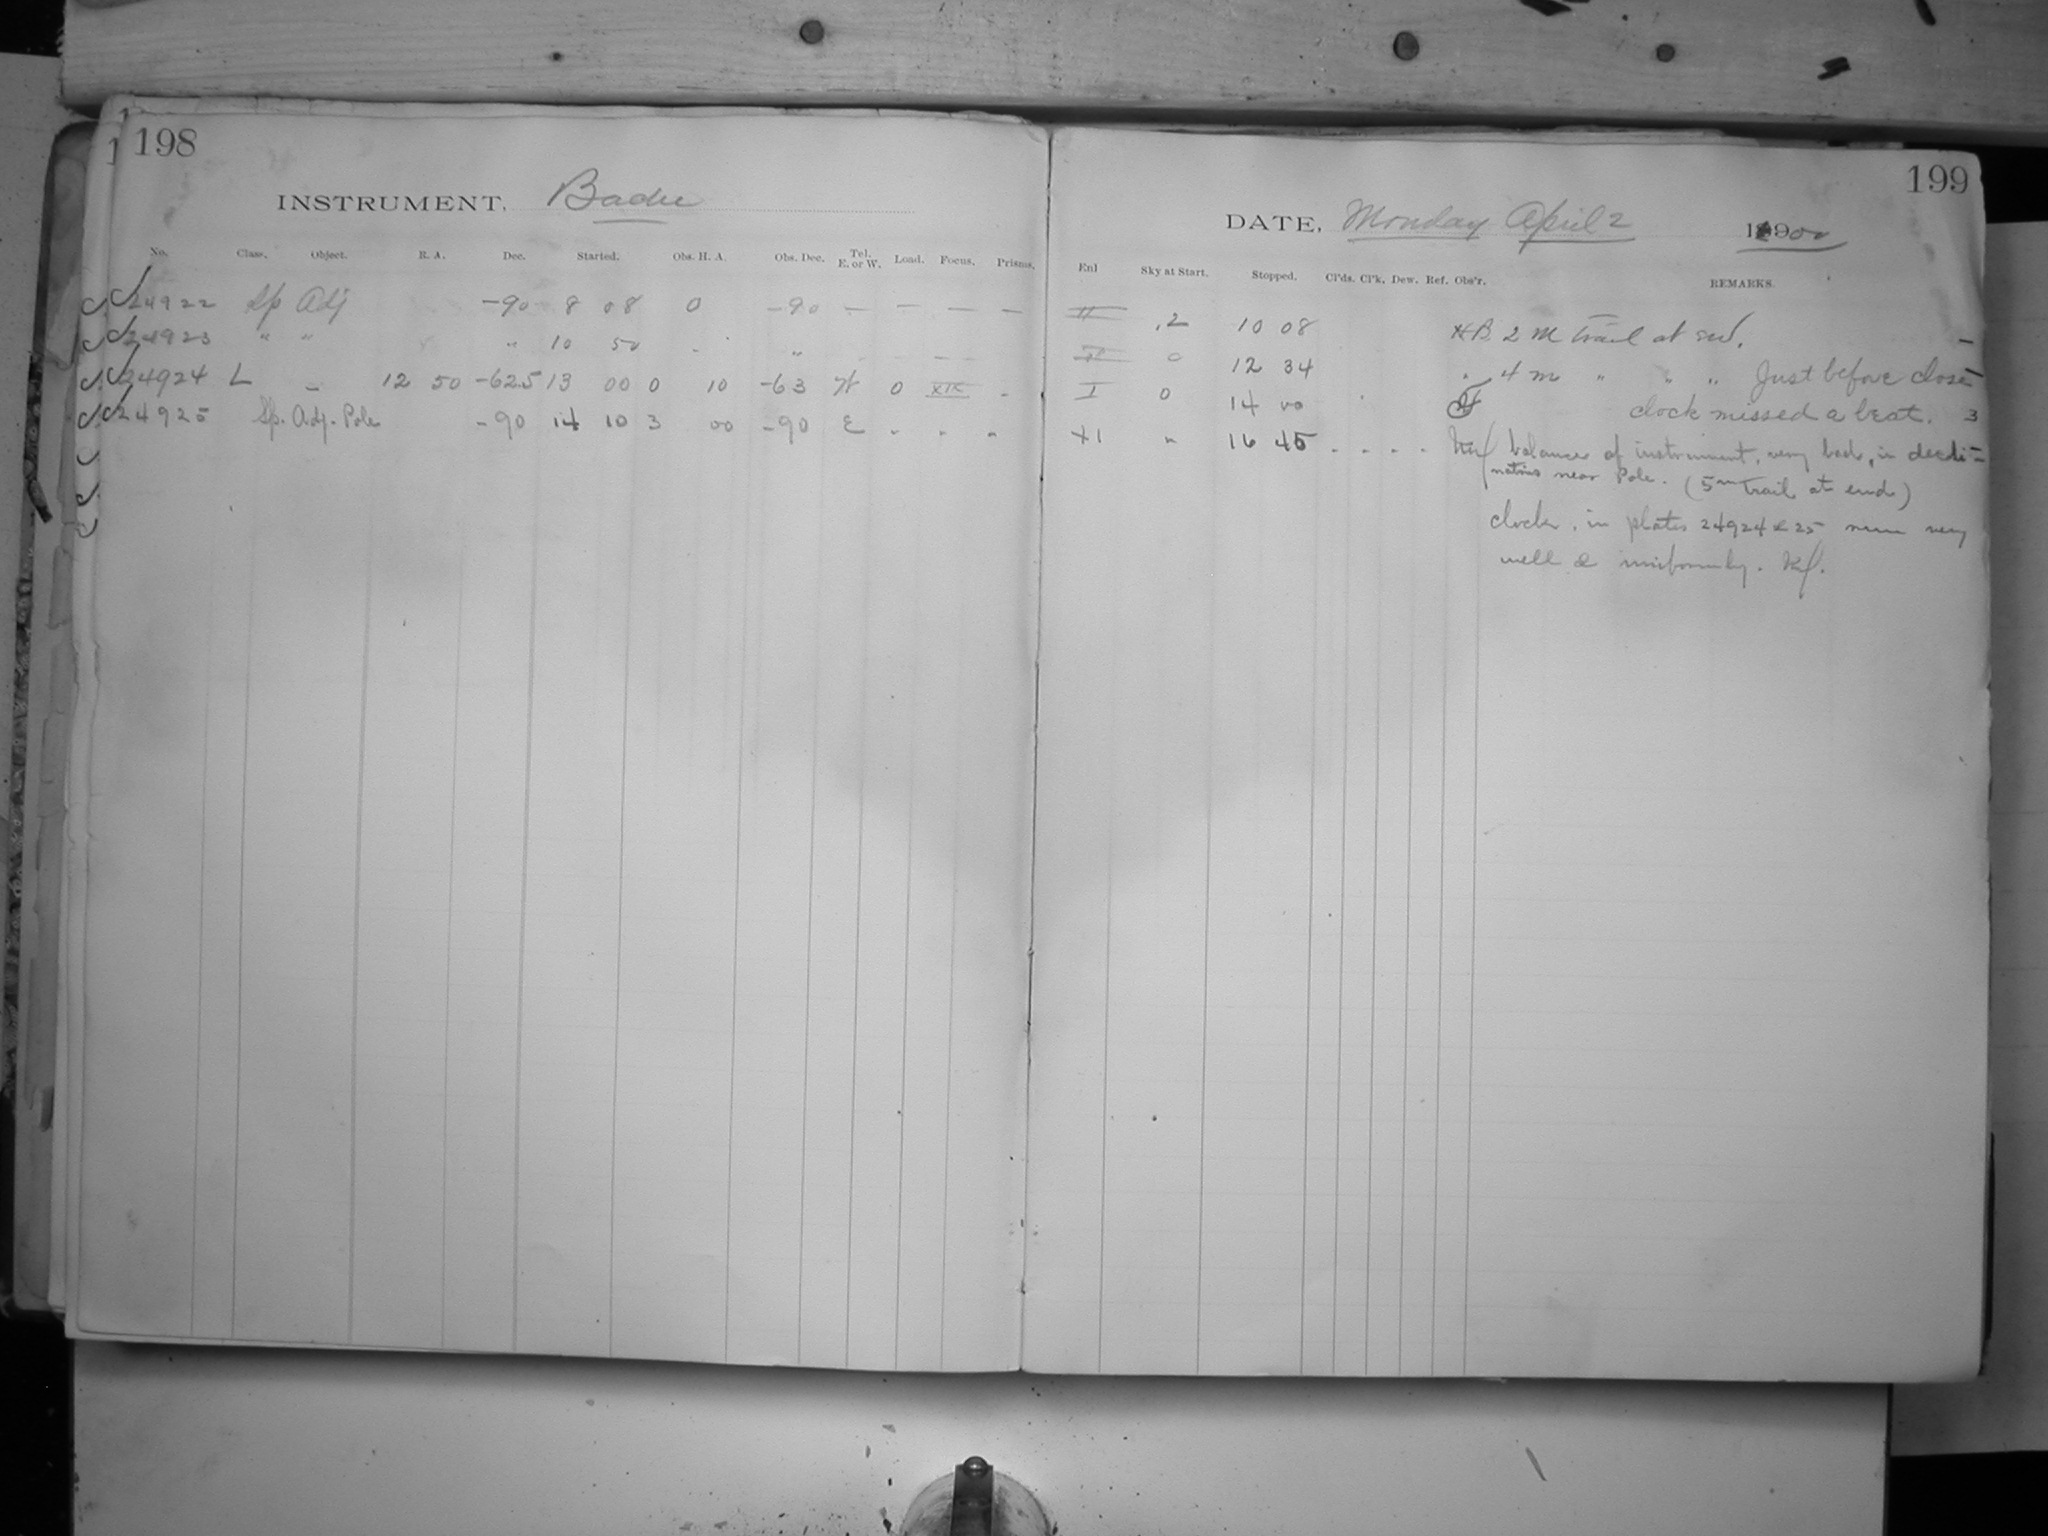 198
INSTRUMENT. Bache
No. Class. Object. R. A. Dec. Started. Obs. H. A. Obs. Dec. Tel. E. or W. Load. Focus. Prisms.
24922 Sp Adj -90 8 08 0 -90 — — — —
24923 " " " 10 50 - " — —
24924 L - 12 50 -62.5 13 00 0 10 -63 W 0 XIX -
24925 Sp. Adj. Pole -90 14 10 3 00 -90 E " " "
199
DATE, Monday April 2 1900
Enl Sky at Start. Stopped. Cl'ds. Cl'k. Dew. Ref. Obs'r. REMARKS.
II .2 10 08 HB 2 m trail at end. —
0 12 34 " 4 m " " " Just before close —
I 0 14 00 clock missed a beat. 3
XI " 16 45 . . . . balance of instrument, very bad, in decli-
nation near Pole. (5m trail at end)
clock, in plates 24924 & 25 run very
well & uniformly.